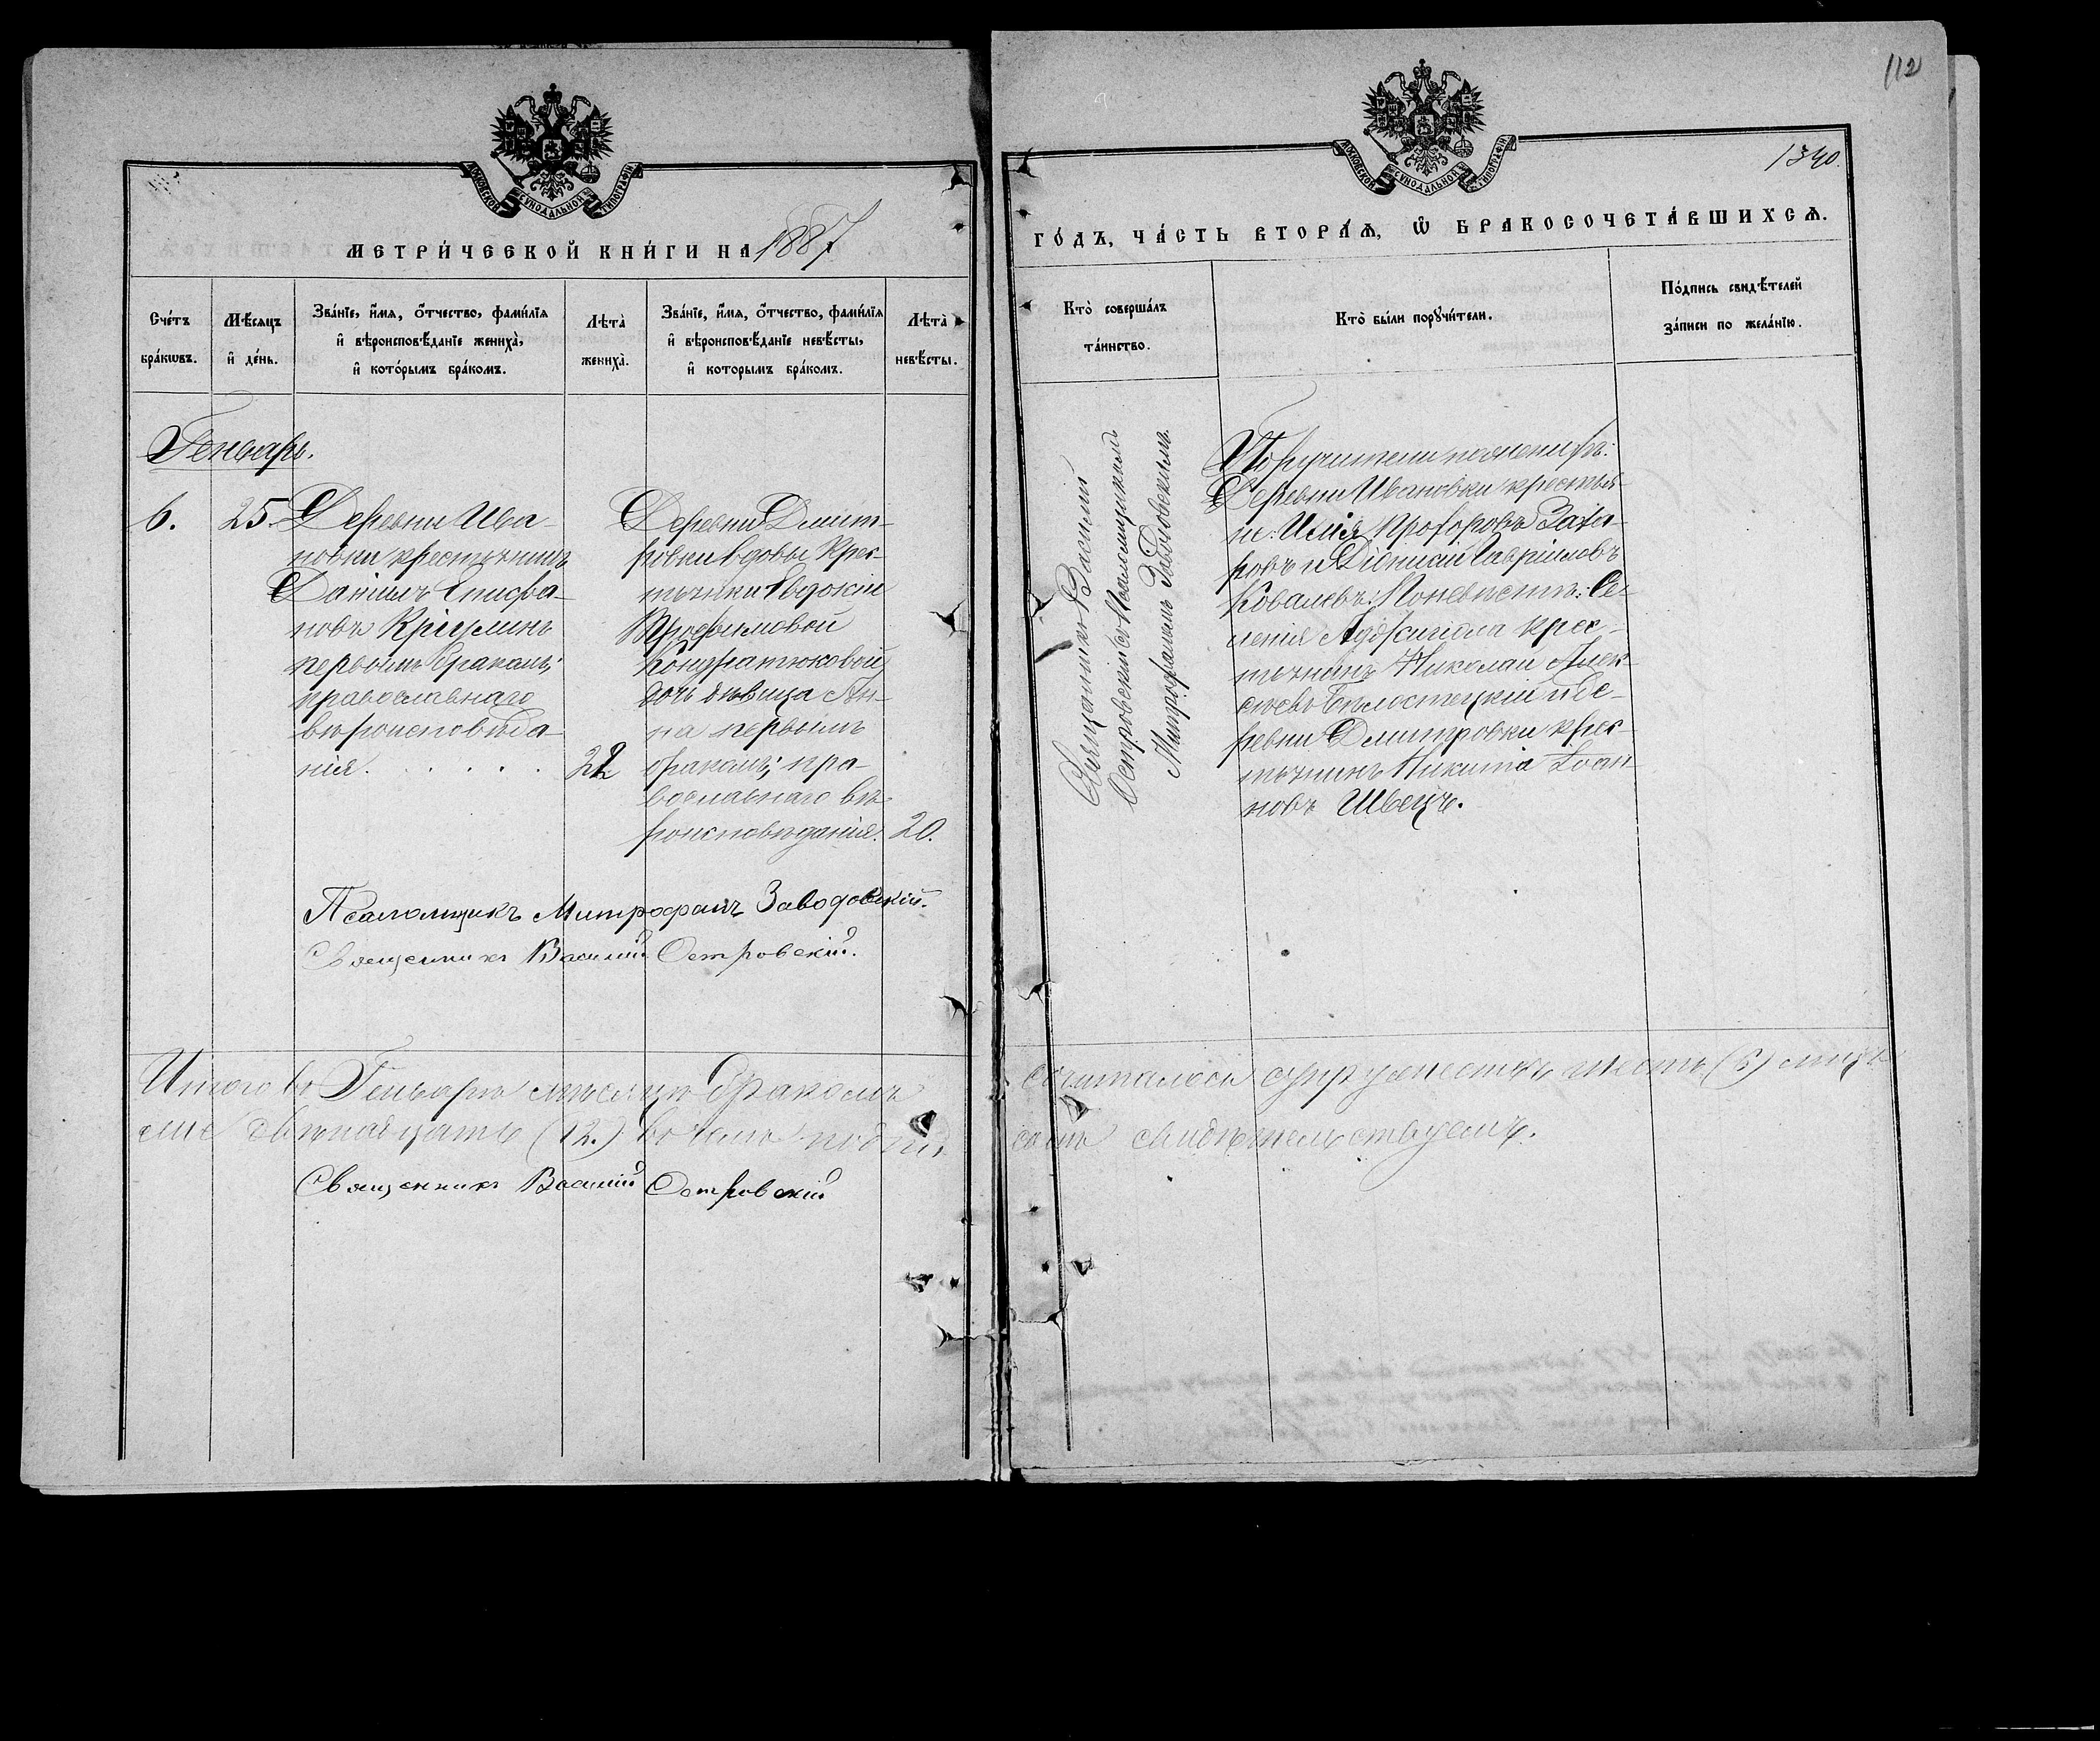 112
1340.
МОСКОВСКОЙ СѴНОДАЛЬНОЙ ТИПОГРАФІИ
МЕТРИ́ЧЕСКОЙ КНИ́ГИ НА 1887
Сче́тъ бра́кѡвъ.
Мѣ́сяцъ и҆ де́нь.
Зва́нїе, и҆́мя, ѻ҆́тчество, фами́лїя
и҆ вѣроисповѣ́данїе жениха̀,
и҆ кото́рымъ бра́комъ.
Лѣта̀ жениха̀.
Зва́нїе, и҆́мя, ѻ҆́тчество, фами́лїя
и҆ вѣроисповѣ́данїе невѣ́сты,
и҆ которымъ бра́комъ.
Лѣта̀ невѣ́сты.
Генварь.
6.
25.
Деревни Ива-
новки крестьянинъ
Даніилъ Епифа-
новъ
первымъ бракомъ,
православнаго
вѣроисповѣда-
нія.
22
Деревни Дмит-
ровки вдовы крес-
тьянки Евдокіи
Трофимовой
Кондратюковой
дочь дѣвица Ан-
на первымъ
бракомъ, пра-
вославнаго вѣ-
роисповѣданія.
20.
Псаломщикъ Митрофанъ Заводовскій.
Священникъ Василій Островскій.
Итого въ Генварѣ мѣсяцѣ бракомъ
двѣнадцать (12.) въ чемъ подпи-
Священникъ Василій Островскій
МОСКОВСКОЙ СѴНОДАЛЬНОЙ ТИПОГРАФІИ
ГО́ДЪ, ЧА́СТЬ ВТОРА́Ѧ, Ѡ҆ БРАКОСОЧЕТА́ВШИХСѦ.
Кто̀ соверша́лъ
та́инство.
Кто̀ бы́ли порꙋчи́тели.
По́дпись свидѣ́телей
за́писи по жела́нїю.
Священникъ Василій
Островскій съ Псаломщикомъ
Митрофаномъ Заводовскимъ.
Поручители по женихѣ:
Деревни Ивановки крестья-
не: Илія Прохоровъ Заха-
ровъ и Діонисій Гавриловъ
Ковалевъ. По невѣстѣ: Се-
ленія крес-
тьянинъ Николай Алек-
сѣевъ Бѣлостецкій и де-
ревни Дмитровки крес-
тьянинъ Никита Іоан-
новъ Швецъ.
сочеталось супружествъ шесть (6)
свидѣтельствуемъ.